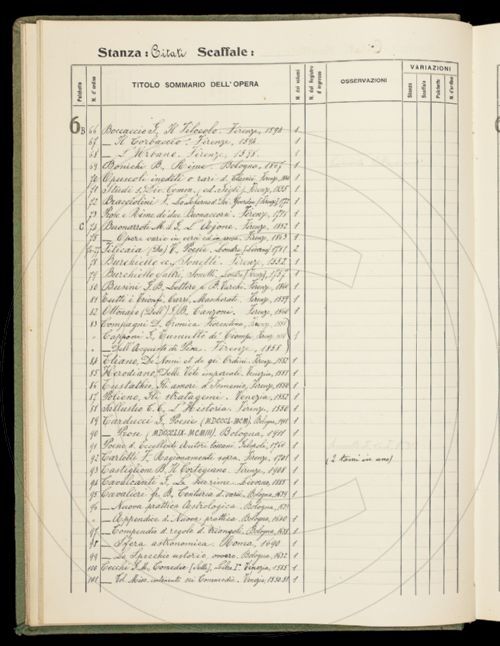 Stanza: Citati Scaffale:
Palchetto
N. d'ordine
TITOLO SOMMARIO DELL'OPERA
N. dei volumi
N. del Registro d'ingresso
OSSERVAZIONI
VARIAZIONI
Stanza
Scaffale
Palchetto
N. d'ordine
6 B 66 Boccaccio G. Il Filocolo. Firenze, 1594 1
67 — Il Corbaccio. Firenze, 1594 1
68 — L'Urbano. Firenze, 1598 1
69 Bonichi B. Rime. Bologna, 1867 1
70 Opuscoli inediti o rari di Classici. Firenze 1
71 Studi s. Div. Comm. ed. Firenze, 1855 1
72 Bracciolini F. Lo Scherno d. Dei 1
73 Rose e Rime di due Buonaccorsi. Firenze, 1
C 74 Buonarroti M. d. G. L'Ajone. Firenze, 1852 1
75 — Opere varie in versi ed in prosa. Firenze, 1863 1
Filicaia (da) V. Poesie, Londra (Livorno) 1781 2
78 Burchiello ec. Sonetti. Firenze, 1552 1
79 Burchiello ed altri. Sonetti. Londra 1757 1
80 Busini G. B. Lettere a B. Varchi. Firenze, 1
81 Tutti i Trionfi, Carri, Mascherate. Firenze, 1559 1
82 Ottonaio (Dell') G. B. Canzone. Firenze, 1
83 Compagni D. Cronica Fiorentina, 1
— Capponi G. Tumulto de' Ciompi
— Dell'Acquisto di Pisa. Firenze, 1858
84 Eliano, De' Nomi et de gli Ordini. Firenze, 1552 1
85 Herodiano, Delle Vite imperiali. Venezia, 1
86 Eustathio, Gli amori d'Ismenio, Firenze, 1550 1
87 Polieno, Gli stratagemi. Venezia, 1552 1
88 Sallustio C. C. L'Historia. Firenze, 1550 1
89 Carducci G. Poesie (MDCCCL-MCM). Bologna, 1
90 — Prose (MDCCCLIX-MCMIII). Bologna, 1
91 Poesie d. eccellenti Autori toscani. 1
92 Carletti F. Ragionamenti sopra. Firenze, 1701 1 (2 tomi in uno)
93 Castiglione B. Il Cortegiano. Firenze, 1908 1
94 Cavalcanti G. Le Rime. 1
95 Cavalieri fr. B. Centuria di varii. Bologna, 1639 1
96 — Nuova prattica Astrologica. Bologna, 1
— Appendice d. Nuova prattica. Bologna, 1640 1
97 — Compendio d. regole d. triangoli. Bologna, 1638 1
98 — Sfera astronomica. Roma, 1690 1
99 — Lo Specchio ustorio, ovvero. Bologna, 1632 1
100 Cecchi G. M. Comedie (Sette), Libro I°. Venezia, 1585 1
101 — Vol. Misc. contenente sei Commedie. Venezia, 1